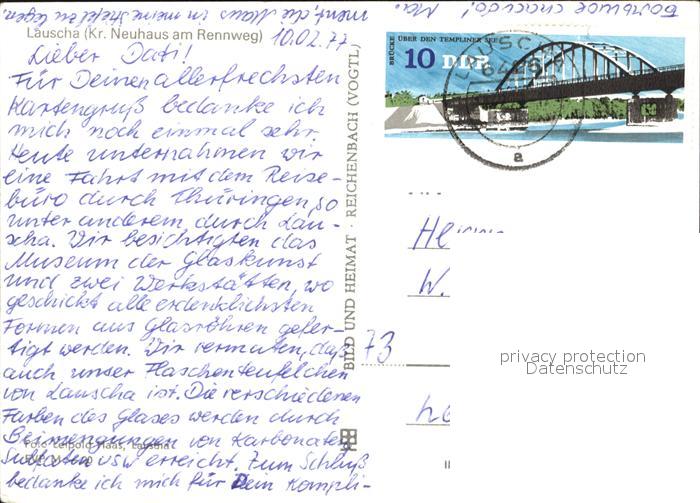 Lauscha (Kr. Neuhaus am Rennweg)
10.02.77
Lieber Dati!
Für Deinen allerfrechsten
Kartengruß bedanke ich
mich noch einmal sehr.
Heute unternahmen wir
eine Fahrt mit dem Reise-
büro durch Thüringen, so
unter anderem durch Lau-
scha. Wir besichtigten das
Museum der Glaskunst
und zwei Werkstätten, wo
geschickt alle erdenklichsten
Formen aus Glasröhren gefer-
tigt werden. Wir vermuten, daß
auch unser Flaschenteufelchen
von Lauscha ist. Die verschiedenen
Farben des Glases werden durch
Beimengungen von Karbonaten
Sulfaten usw erreicht. Zum Schluß
bedanke ich mich für Dein Kompli-
ment, die Maus in meine Stiefel zu legen.
Foto Leipold-Haas, Lauscha
BILD UND HEIMAT · REICHENBACH (VOGTL)
BRÜCKE ÜBER DEN TEMPLINER SEE
10 DDR
a
73
W.
privacy protection
Datenschutz